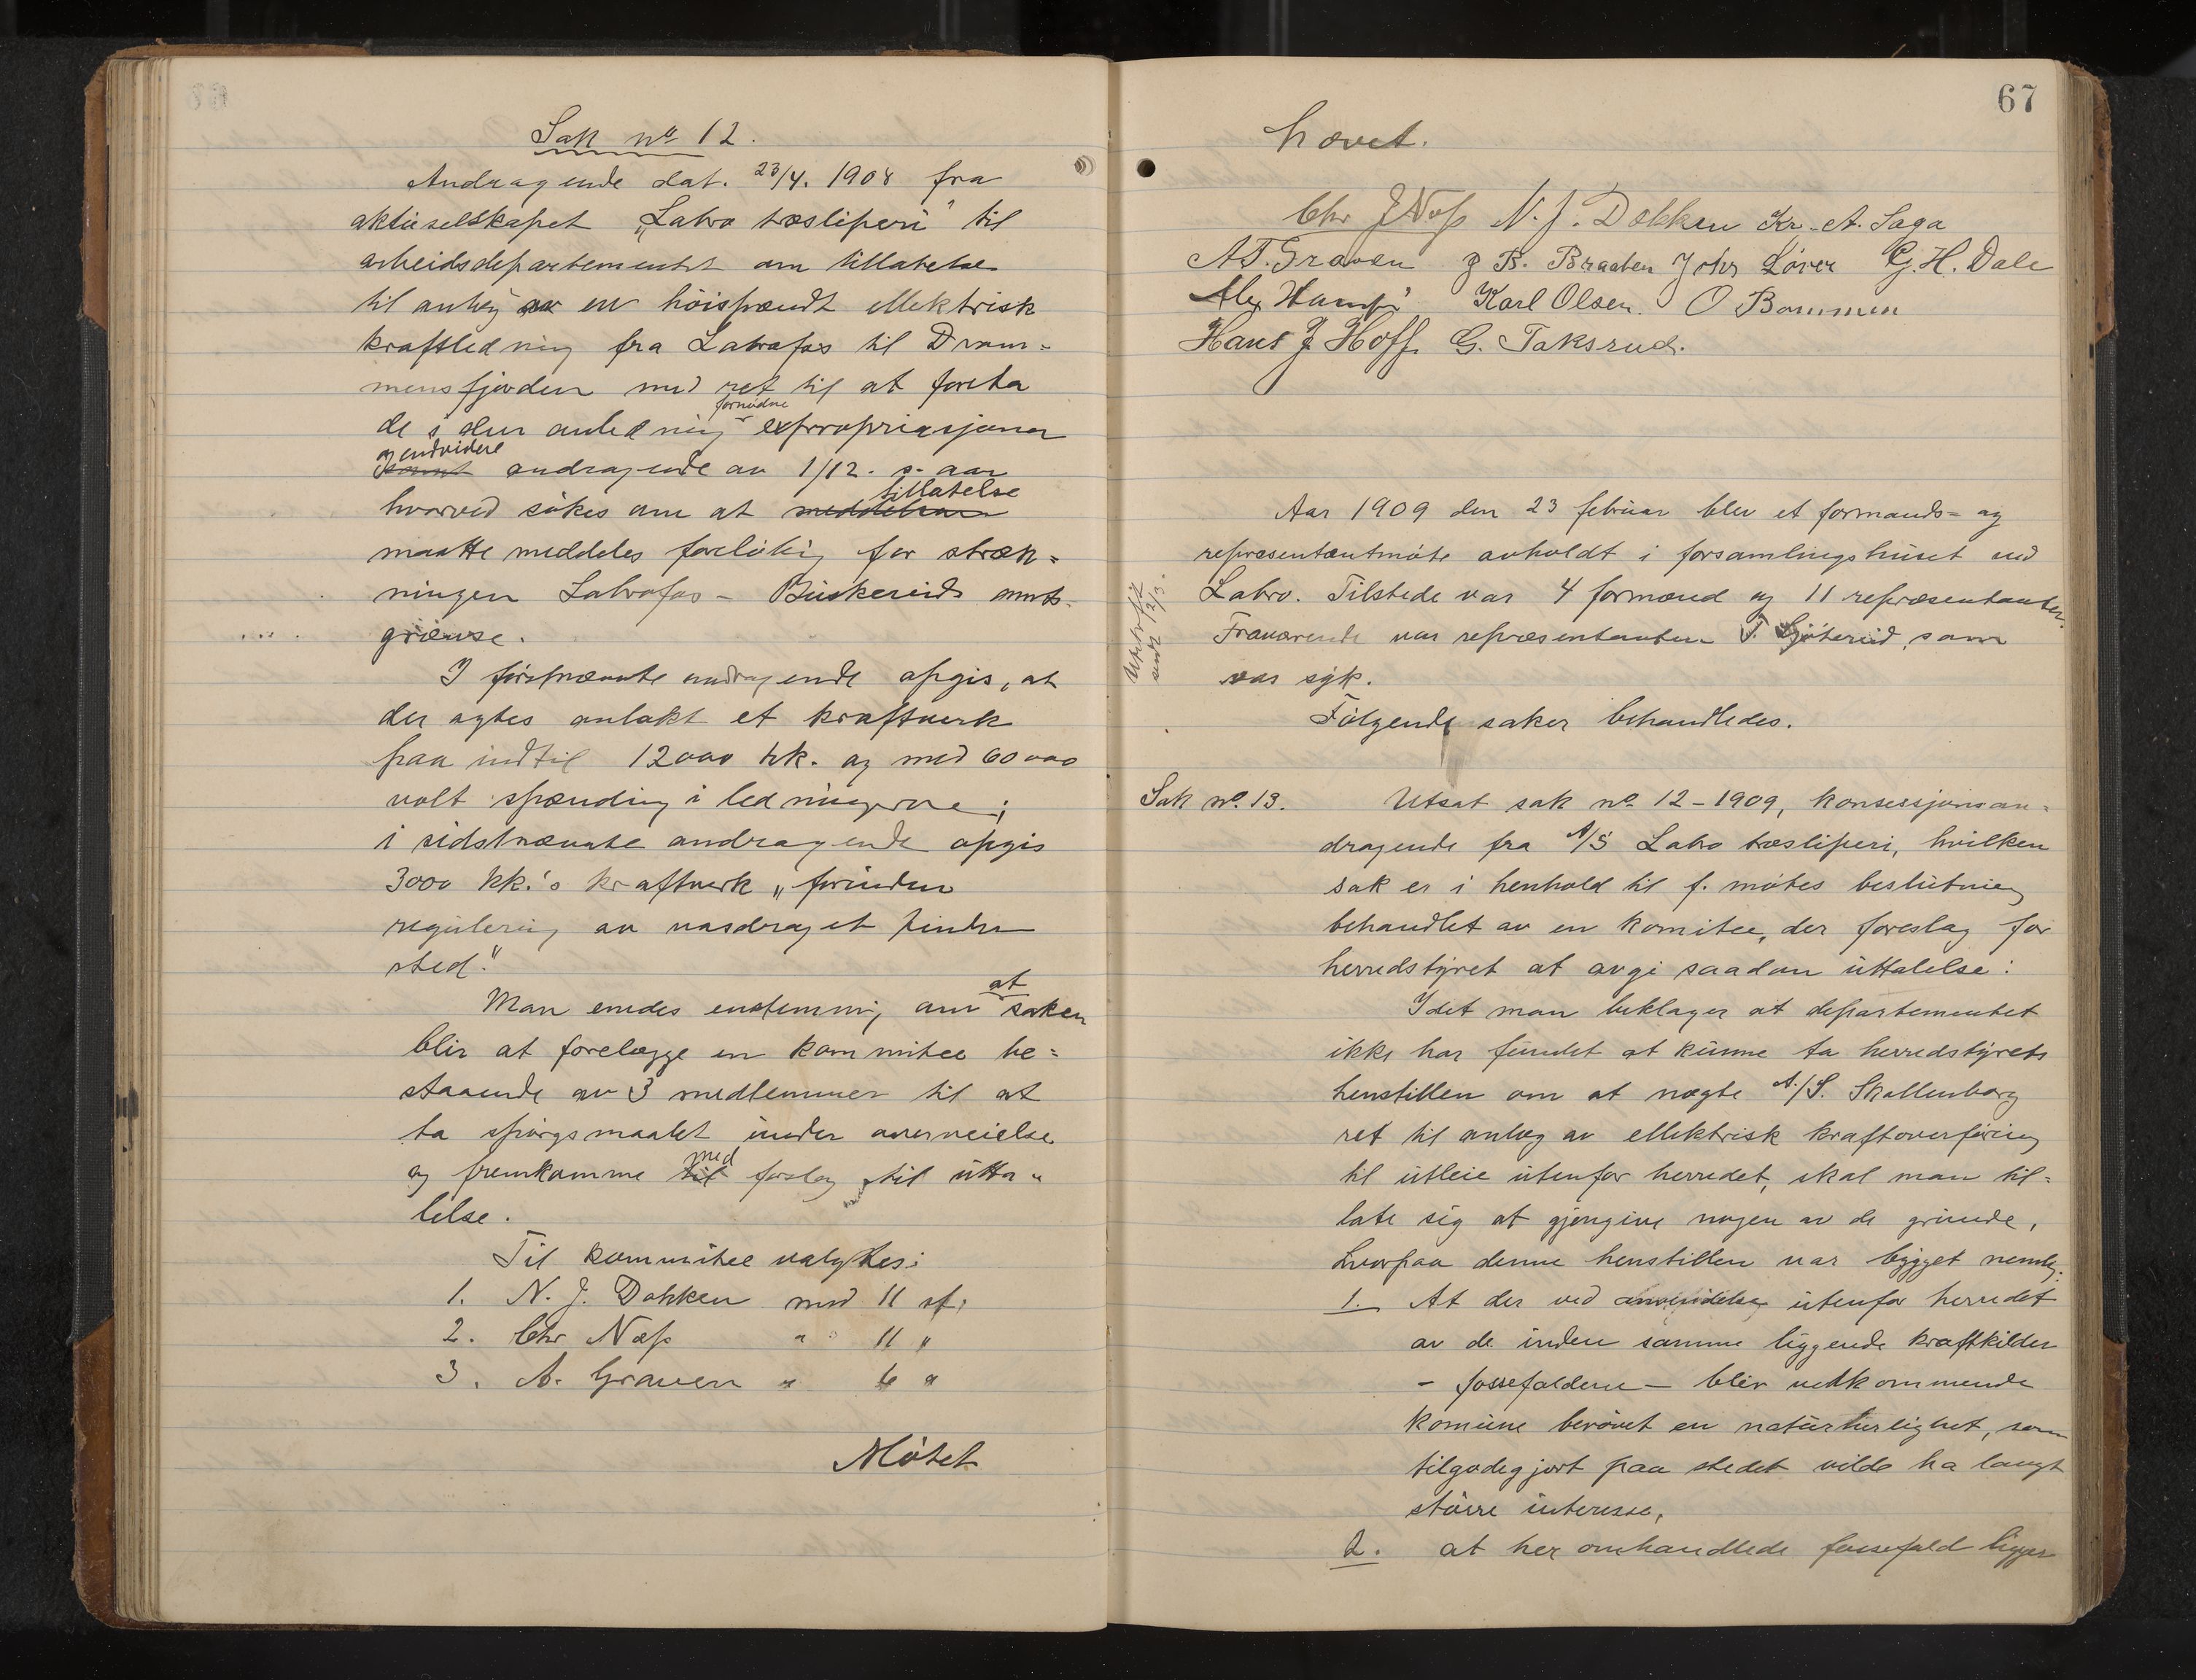 Sak nº 12.
Andragende dat. 23/4. 1908 fra
aktieselskapet „Labro træsliperi" til
arbeidsdepartementet om tillatelse
til anlæg av en høispændt ellektrisk
kraftledning fra Labrofos til Dram-
mensfjorden med ret til at foreta
de i den anledning fornødne expropriasjoner
og endvidere andragende av 1/12. s. aar
hvorved søkes om at tillatelse
maatte meddeles foreløbig for stræk-
ningen Labrofos - Buskeruds amts-
grænse.
I førstnævnte andragende opgis, at
der agtes anlakt et kraftverk
paa indtil 12000 hk. og med 60000
volt spænding i ledningerne;
i sidstnævnte andragende opgis
3000 hk.'s kraftverk „forinden
regulering av vasdraget finder
sted."
Man enedes enstemmig om at saken
blir at forelægge en kommitee be-
staaende av 3 medlemmer til at
ta spørgsmaalet under overveielse
og fremkomme med forslag til utta-
lelse.
Til kommitee valgtes:
1. N. J. Dokken med 11 st.
2. Chr Næss " " 11 "
3. A. Graven " 6 "
Møtet
67
hævet.
Chr J Næss N. J. Dokken Kr. A. Saga
A T. Graven J B. Braaten John Løver G. H. Dale
Alex Karl Olsen. O Bommen
Hans J Hoff G. Taksrud.
Aar 1909 den 23 februar blev et formands- og
repræsentantmøte avholdt i forsamlingshuset ved
Labro. Tilstede var 4 formænd og 11 repræsentanter.
Fraværende var repræsentanten T. som
var syk.
Følgende saker behandledes.
Sak nº 13. Utsat sak nº 12-1909, konsessjonsan-
dragende fra A/S Labro træsliperi, hvilken
sak er i henhold til f. møtes beslutning
behandlet av en komitee, der foreslag for
herredstyret at avgi saadan uttalelse:
Idet man beklager at departementet
ikke har fundet at kunne ta herredstyrets
henstillen om at nægte A/S. Skollenborg
ret til anlæg av ellektrisk kraftoverføring
til utleie utenfor herredet, skal man til-
late sig at gjengive nogen av de grunde,
hvorpaa denne henstillen var bygget nemlig:
1. At der ved anvendelse utenfor herredet
av de inden samme liggende kraftkilder
- fossefaldene - blir vedkommende
komune berøvet en naturherlighet, som
tilgodegjort paa stedet vilde ha langt
større interesse,
2. at her omhandlede fossefald ligger